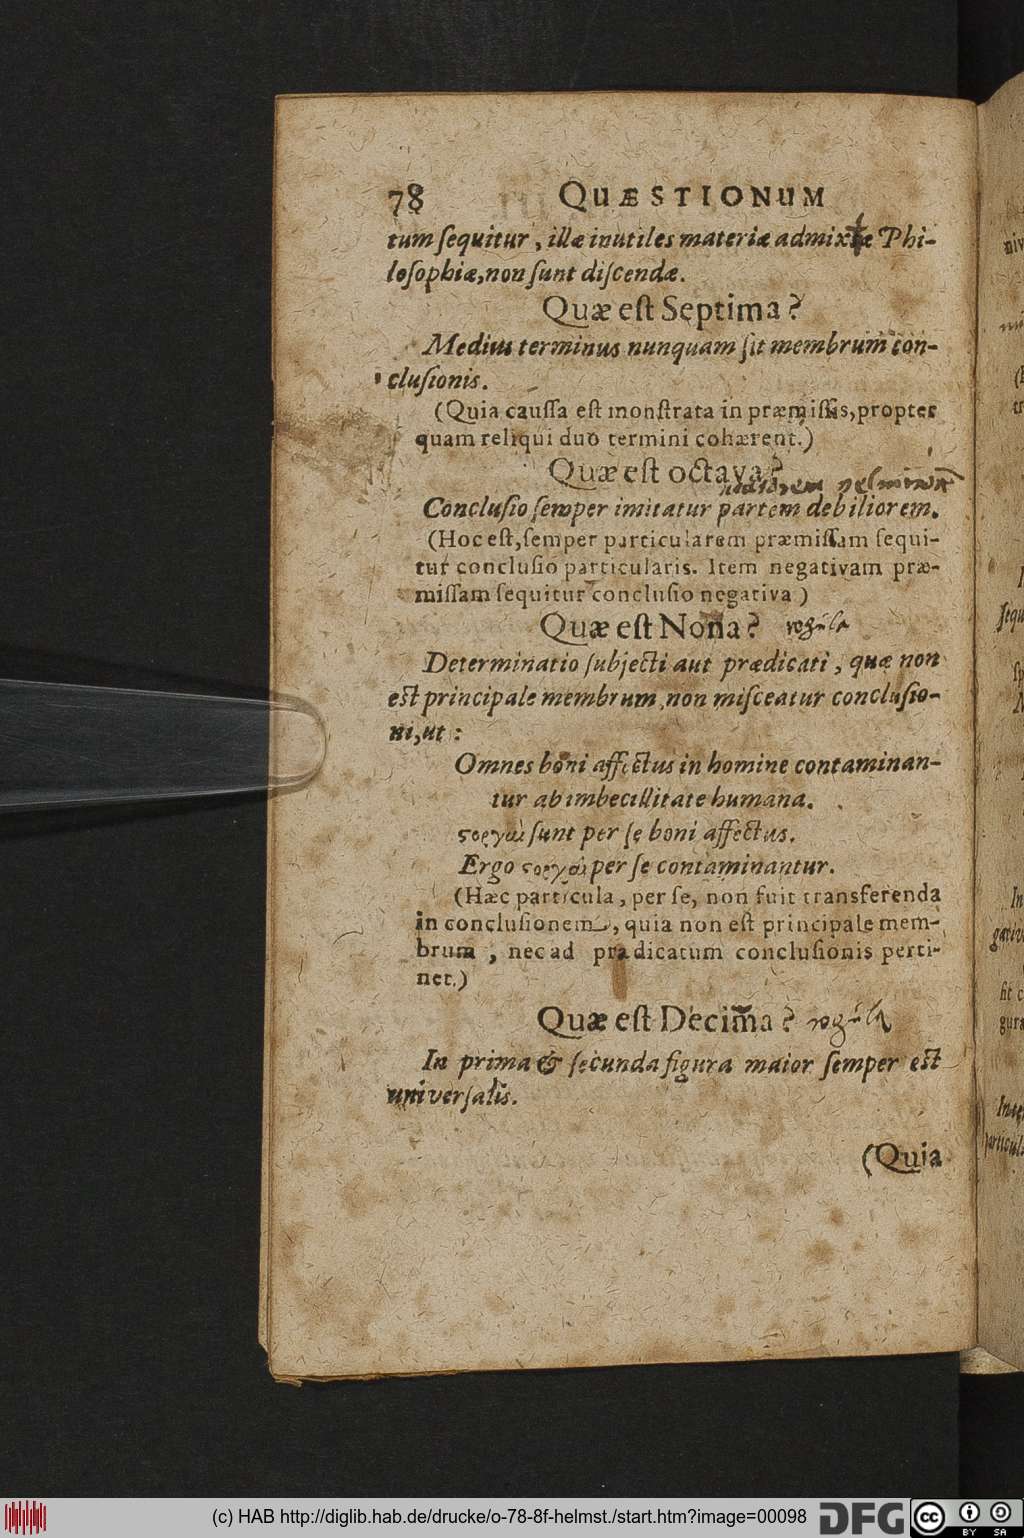 78 QUÆSTIONUM
tum ſequitur, illæ inutiles materiæ admixtæ Phi-
loſophiæ, non ſunt diſcendæ.
Quæ eſt Septima?
Medius terminus nunquam ſit membrum con-
cluſionis.
(Quia cauſſa eſt monſtrata in præmiſſis, propter
quam reliqui duo termini cohærent.)
Quæ eſt octava?
majorem vel minorem
Concluſio ſemper imitatur partem debiliorem.
(Hoc eſt, ſemper particularem præmiſſam ſequi-
tur concluſio particularis. Item negativam præ-
miſſam ſequitur concluſio negativa)
Quæ eſt Nona? regula
Determinatio ſubjecti aut prædicati, quæ non
eſt principale membrum, non miſceatur concluſio-
ni, ut:
Omnes boni affectus in homine contaminan-
tur ab imbecillitate humana.
ςοργαὶ ſunt per ſe boni affectus.
Ergo ςοργαὶ per ſe contaminantur.
(Hæc particula, per ſe, non fuit transferenda
in concluſionem, quia non eſt principale mem-
brum, nec ad prædicatum concluſionis perti-
net.)
Quæ eſt Decima? regula
In prima & ſecunda figura maior ſemper eſt
univerſalis.
(Quia
(c) HAB http://diglib.hab.de/drucke/o-78-8f-helmst./start.htm?image=00098 DFG CC BY SA